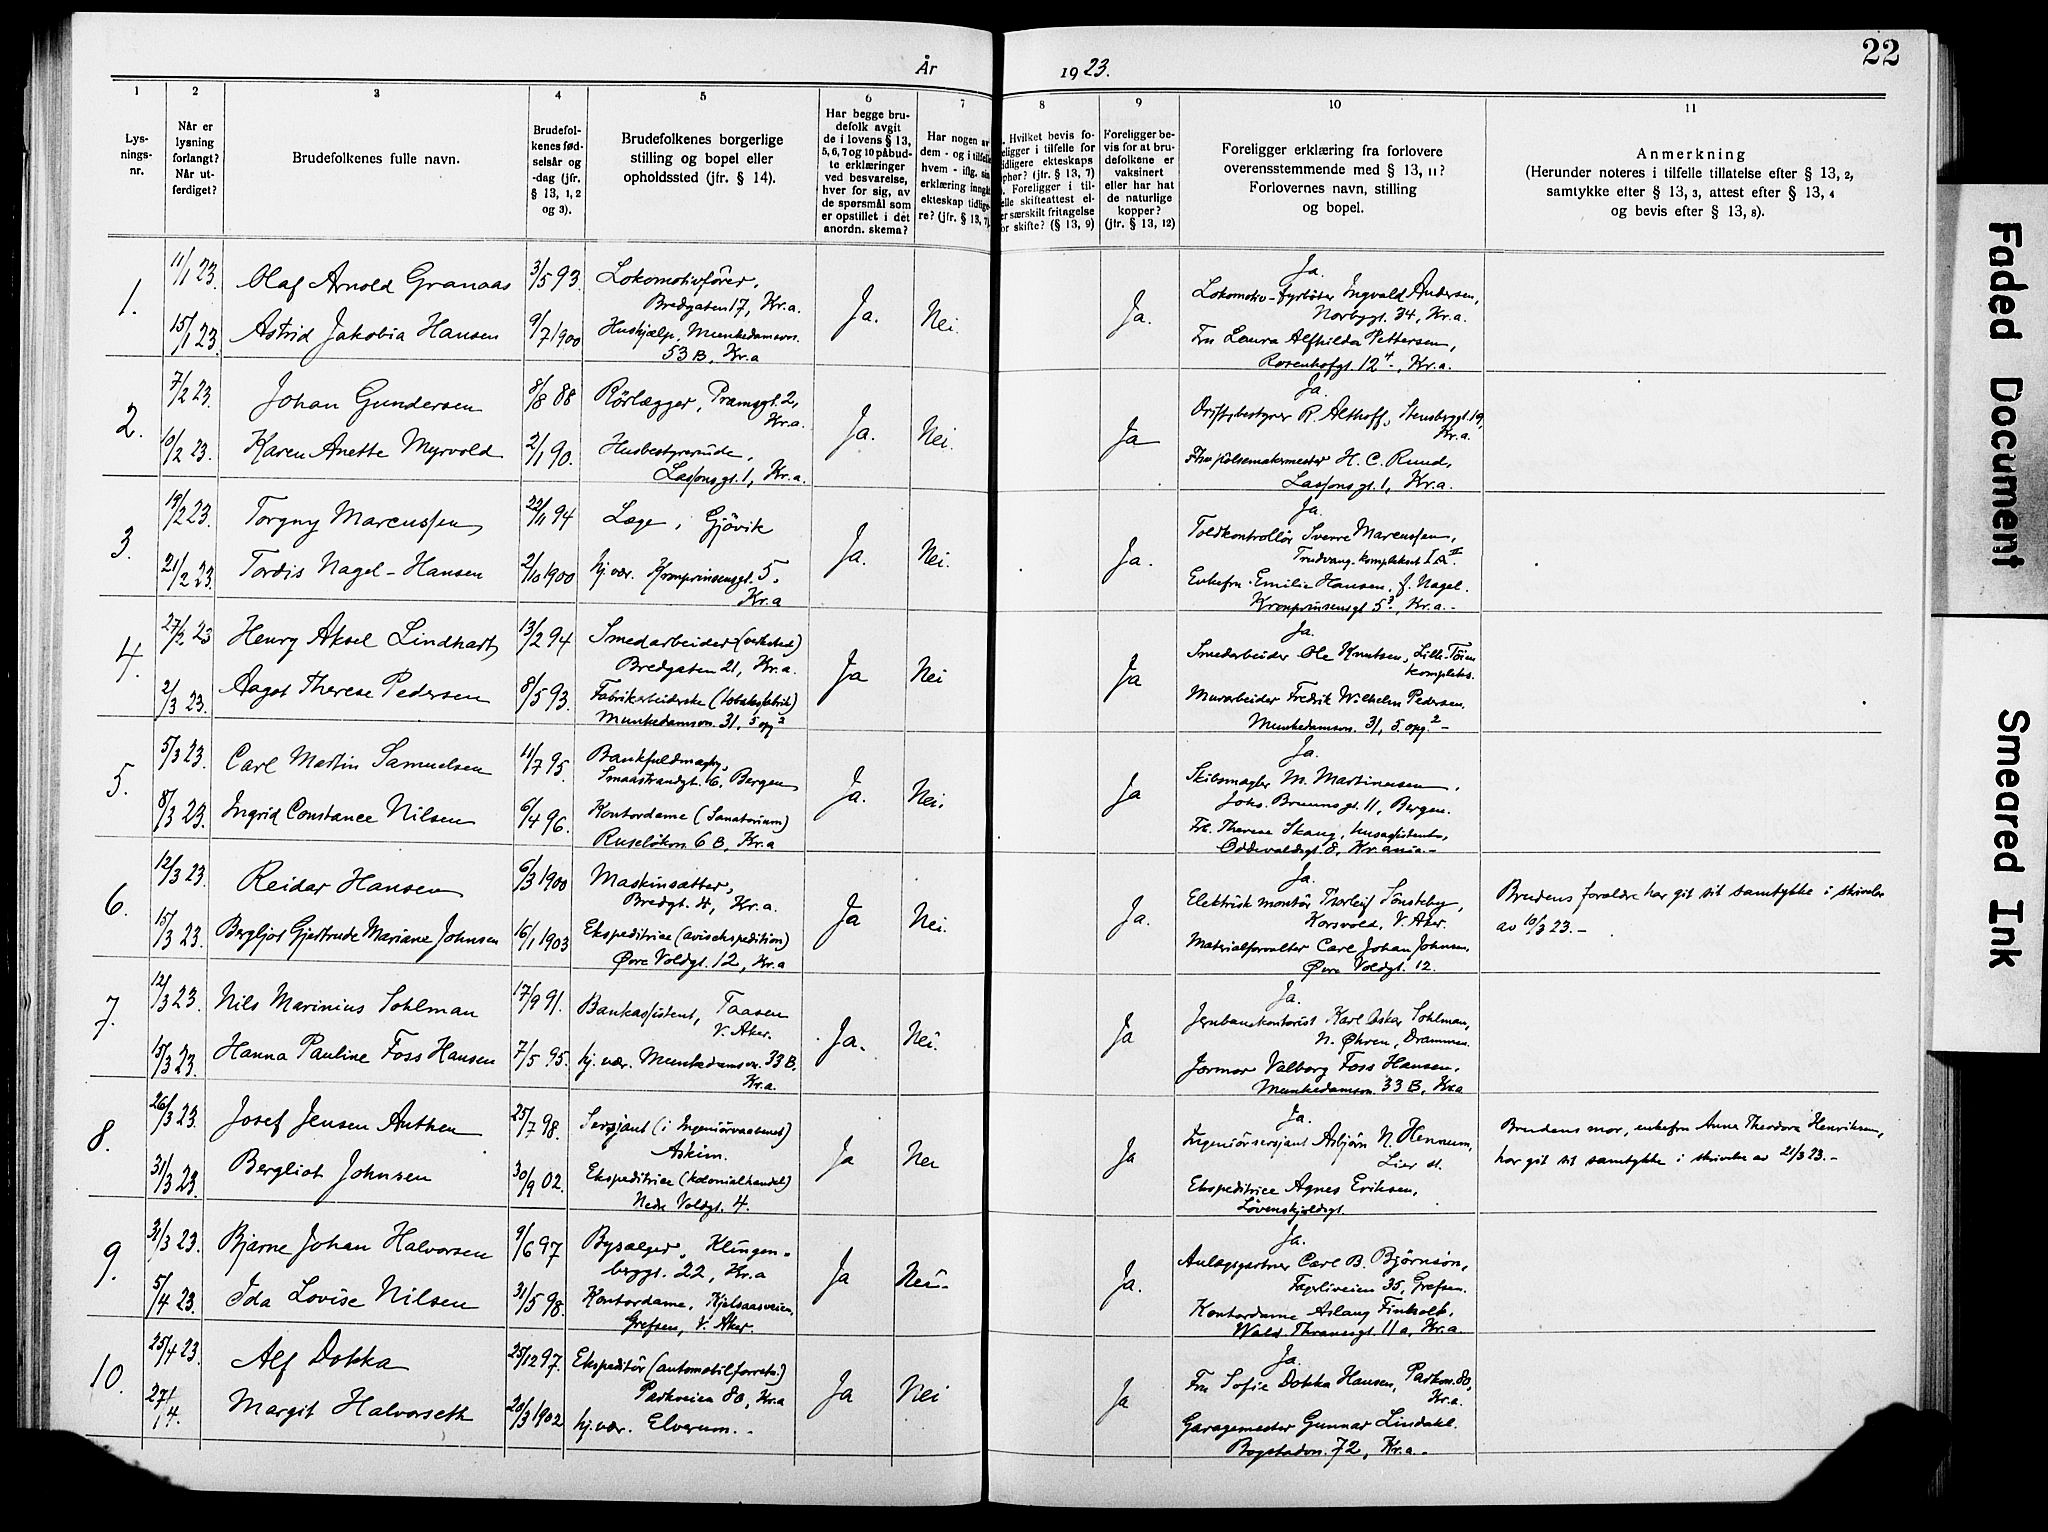 22
År 1923.
1 2 3 4 5 6 7 8 9 10 11
Lys-
nings-
nr.
Når er
lysning
forlangt?
Når ut-
ferdiget?
Brudefolkenes fulle navn.
Brudefol-
kenes fød-
selsår og
-dag (jfr.
§ 13, 1, 2
og 3).
Brudefolkenes borgerlige
stilling og bopel eller
opholdssted (jfr. § 14).
Har begge bru-
defolk avgit
de i lovens § 13,
5, 6, 7 og 10 påbud-
te erklæringer
ved besvarelse,
hver for sig, av
de spørsmål som
er opstillet i det
anordn. skema?
Har nogen av
dem - og i tilfelle
hvem - iflg. sin
erklæring inngått
ekteskap tidlige-
re? (jfr. § 13, 7).
Hvilket bevis fo-
religger i tilfelle for
tidligere ekteskaps
ophør? (jfr. § 13, 7)
Foreligger i til-
felle skifteattest el-
er særskilt fritagelse
for skifte? (§ 13, 9)
Foreligger be-
vis for at bru-
defolkene er
vaksinert
eller har hat
de naturlige
kopper?
(jfr. § 13, 12)
Foreligger erklæring fra forlovere
overensstemmende med § 13, 11?
Forlovernes navn, stilling
og bopel.
Anmerkning
(Herunder noteres i tilfelle tillatelse efter § 13, 2,
samtykke efter § 13, 3, attest efter § 13, 4
og bevis efter § 13, 8).
1.
11/1 23. Olaf Arnold Granaas 3/5 93. Lokomotivfører,
Bredgaten 17, Kr.a.
15/1 23. Astrid Jakobia Hansen 9/7 1900 Hushjælp, Munkedamsvn.
53 B, Kr.a
Ja. Nei. Ja.
Ja.
Lokomotiv-fyrbøter Ingvald Andersen,
Norbygt. 34, Kr.a.
Fru Laura Alfhilda Pettersen,
Rosenhofgt. 12 4, Kr.a.
2.
7/2 23. Johan Gundersen 8/8 88 Rørlægger, Pramsgt. 2,
Kr.a.
10/2 23. Karen Anette Myrvold 2/1 90. Husbestyrerinde,
Lassonsgt. 1, Kr.a.
Ja. Nei. Ja
Ja.
Driftsbestyrer R. Althoff, Stensbergt. 19,
Kr.a.
pølsemakermester H. C. Ruud,
Lassonsgt. 1, Kr.a.
3.
19/2 23. Torgny Marcussen 22/11 94 Læge, Gjøvik
21/2 23. Tordis Nagel-Hansen 2/10 1900 hj. vær. Kronprinsensgt. 5.
Kr.a
Ja. Nei. Ja.
Ja.
Toldkontrollør Sverre Marcussen,
Trudvang-komplekset I A II.
Enkefru Emilie Hansen, f. Nagel.
Kronprinsensgt 5 3, Kr.a.-
4.
27/2 23 Henry Aksel Lindhart 13/2 94 Smedarbeider (verksted)
Bredgaten 21, Kr.a.
2/3 23. Aagot Therese Pedersen 8/5 93. Fabrikarbeiderske (tobaksfabrik)
Munkedamsvn. 31, 5 opg 2
Ja Nei Ja
Ja.
Smedarbeider Ole Knutsen, Lille-Tøien
kompleks.
Murarbeider Fredrik Wilhelm Pedersen.
Munkedamsvn. 31, 5. opg. 2 -
5.
5/3 23. Carl Martin Samuelsen 11/7 95. Bankfuldmægt.,
Smaastrandgt. 6, Bergen
8/3 23. Ingrid Constance Nilsen 6/4 96. Kontordame (Sanatorium)
Ruseløkvn. 6 B, Kr.a
Ja. Nei. Ja
Ja.
Skibsmægler M. Martinussen,
Johs. Bruunsgt. 11, Bergen.
Frk. Therese Skaug, husassistent,
Oddevaldsgt. 8, Kr.ania-
6.
12/3 23. Reidar Hansen 6/3 1900 Maskinsætter,
Bredgt. 4, Kr.a.
15/3 23. Bergljot Gjertrude Mariane Johnsen 16/1 1903 Ekspeditrice (avisekspedition)
Øvre Voldgt. 12, Kr.a
Ja Nei. Ja.
Ja.
Elektrisk montør Thorleif Sønsteby,
Korsvold, V. Aker.
Materialforvalter Carl Johan Johnsen.
Øvre Voldgt. 12.
Brudens forældre har git sit samtykke i skrivelse
av 10/3 23. -
7.
12/3 23. Nils Marinius Sohlman 17/9 91. Bankassistent, Taasen
V. Aker.
15/3 23. Hanna Pauline Foss Hansen 7/5 95. hj. vær. Munkedamsvn. 33 B.
Kr.a.
Ja. Nei. Ja
Ja.
Jernbanekontorist Karl Oskar Sohlman,
N. Øhren, Drammen.
Jormor Valborg Foss Hansen,
Munkedamsvn. 33 B, Kr.a
8.
26/3 23. Josef Jensen Authen 25/7 98. Sersjant (i Ingeniørvaabnet)
Askim.
31/3 23. Bergliot Johnsen 30/9 02. Ekspeditrice (kolonialhandel)
Nedre Voldgt. 4.
Ja Nei Ja
Ja.
Ingeniørsersjant Asbjørn N. Hennum,
Lier st.
Ekspeditrice Agnes Eriksen,
Løvenskjoldsgt.
Brudens mor, enkefru Anna Theodora Henriksen,
har git sit samtykke i skrivelse av 21/3 23. -
9.
31/3 23. Bjarne Johan Halvorsen 9/6 97 Bysælger, Klingen-
berggt. 22, Kr.a
5/4 23. Ida Lovise Nilsen 31/5 98. Kontordame, Kjelsaasveien,
Grefsen, V. Aker.
Ja Nei- Ja.
Ja.
Anlægsgartner Carl B. Bjørnson,
Fagerliveien 35, Grefsen.
Kontordame Aslaug Finholt,
Wald. Thranesgt. 11a, Kr.a.
10.
25/4 23. Alf Dokka 25/12 97. Ekspeditør (automobilforretn.)
Parkveien 80, Kr.a
27/4. Margit Halvorseth 20/3 1902 hj. vær. Elverum. -
Ja Nei Ja
Ja.
Fru Sofie Dokka Hansen, Parkvn. 80,
Kr.a.
Garagemester Gunnar Lindahl.
Bogstadvn. 72, Kr.a.-
Faded Document
Smeared Ink